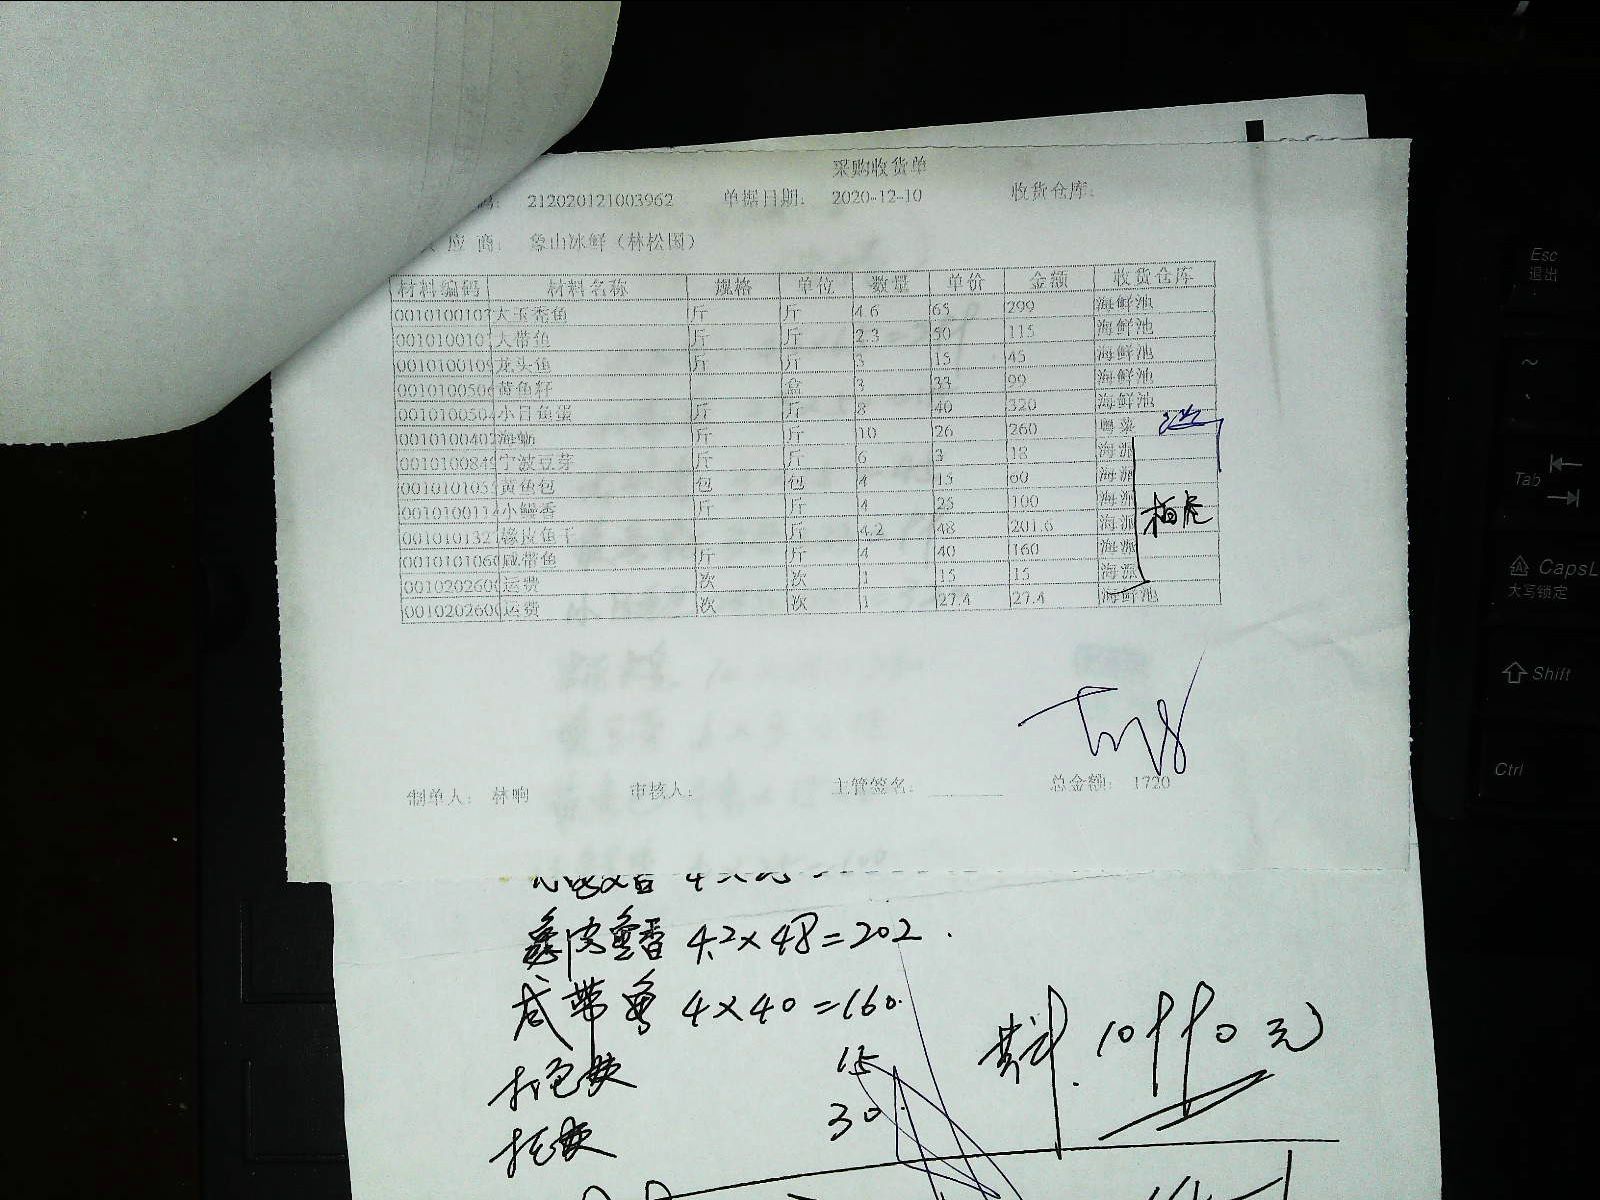 采购收货单
212020121003962 单据日期: 2020-12-10 收货仓库:
应 商: 象山冰鲜(林松国)
材料编码 材料名称 规格 单位 数量 单价 金额 收货仓库
0010100103 大玉秃鱼 斤 斤 4.6 65 299 海鲜池
001010010 大带鱼 斤 斤 2.3 50 115 海鲜池
0010100109 龙头鱼 斤 斤 3 15 45 海鲜池
001010050 黄鱼籽 盒 3 33 99 海鲜池
0010100504 小目鱼蛋 斤 斤 8 40 320 海鲜池
0010100402 海蛎 斤 斤 10 26 260 粤菜
0010100849 宁波豆芽 斤 斤 6 3 18 海派
001010105 黄鱼包 包 包 4 15 60 海派
001010011 小鳗香 斤 斤 4 25 100 海派
001010132 橡皮鱼干 斤 4.2 48 201.6 海派
0010101060 咸带鱼 斤 斤 4 40 160 海派
0010202600 运费 次 次 1 15 15 海派
0010202600 运费 次 次 1 27.4 27.4 海鲜池
制单人: 林晌 审核人: 主管签名: 总金额: 1720
4×25=100
4.2×48=202.
咸带鱼 4×40=160.
打包费 15
托费 30.
元
Esc
退出
~
Tab
CapsL
大写锁定
Shift
Ctrl